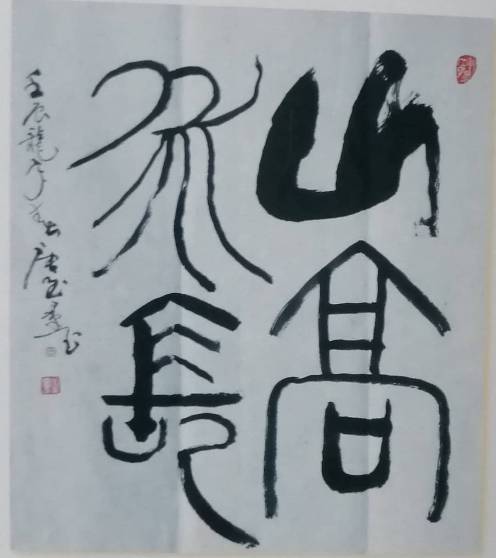 山高
水長
壬辰龍年